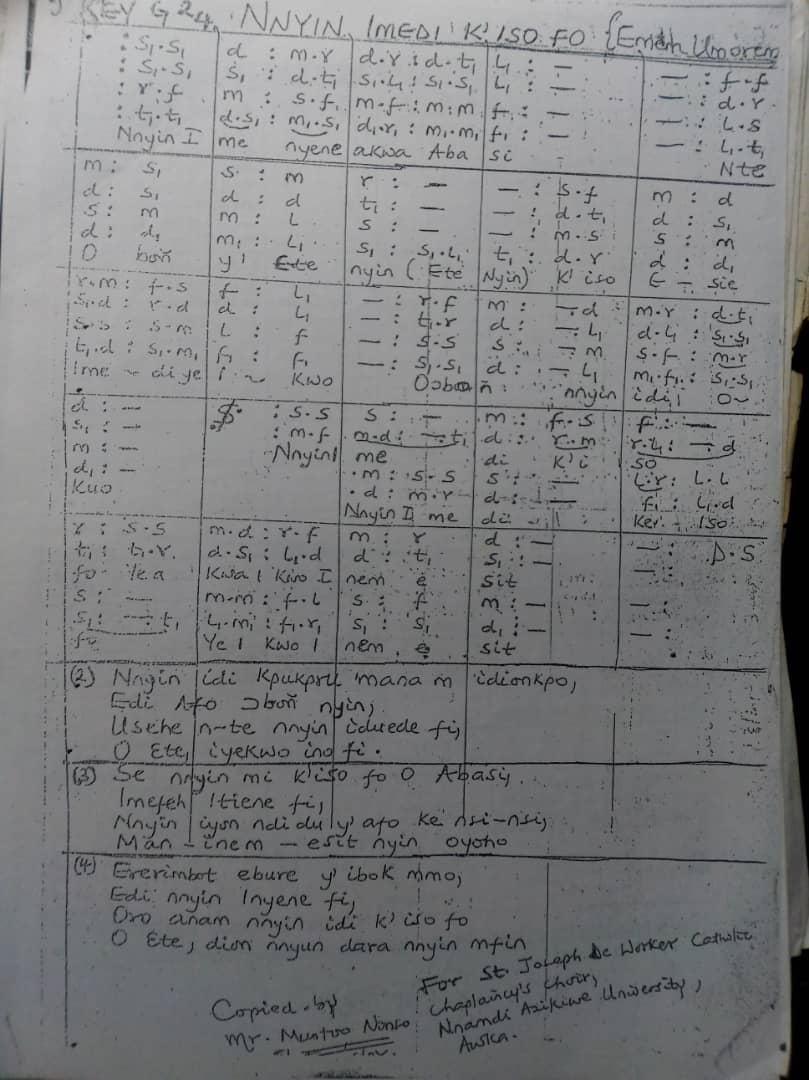 KEY G 2/4, NNYIN IMEDI K'ISO FO {Emah Umoren
: S₁.S₁ d : m.r d.r : d.t₁ L₁ : — — : f.f
: S₁.S₁ S₁ : d.t₁ S₁.L₁ : S₁.S₁ L₁ : — — : d.r
: r.f m : s.f m.f : m.m f₁ : — — : L.s
: t₁.t₁ d.s₁ : m₁.s₁ d₁.r₁ : m₁.m₁ f₁ : — — : L₁.t₁
Nnyin I me nyene akwa Aba si Nte
m : s₁ s : m r : — — : s.f m : d
d : s₁ d : d t₁ : — — : d.t₁ d : s₁
s : m m : L s : — — : m.s s : m
d : d₁ m₁ : L₁ s₁ : s₁.L₁ t₁ : d.r d : d₁
O boñ y' Ete nyin ( Ete Nyin) K' iso E — sie
r.m : f.s f : L₁ — : r.f m : —.d m.r : d.t₁
s₁.d : r.d d : L₁ — : t₁.r d : —.L₁ d.L₁ : s₁.s₁
s.s : s.m L : f — : s.s s : —.m s.f : m.r
t₁.d : s₁.m₁ f₁ : f₁ — : s₁.s₁ d : —.L₁ m₁.f₁ : s₁.s₁
Ime ~ di ye i ~ Kwo Oɔboñ nnyin idi O~
d : — : s.s s : — m : f.s f : —
s₁ : — : m.f m.d : —.t₁ d : r.m r.t₁ : —.d
m : — Nnyin I me di K'i so
d₁ : — .m : s.s s : — L.r : L.L
Kuo .d : m.r d : — f₁ : L₁.d
Nnyin I me di Ke Iso
r : s.s m.d : r.f m : r d : — — : D.S
t₁ : t₁.r d.s₁ : L₁.d d : t₁ s₁ : — — :
fo Ye a Kwa I Kwo I nem e sit
s : — m.m : f.L s : f m : — — :
s₁ : —.t₁ L₁.m₁ : f₁.r₁ s₁ : s₁ d₁ : — — :
fo Ye I Kwo I nem e sit
(2) Nnyin idi Kpukpru mana m idionkpo,
Edi Afo ɔboñ nyin,
Usehe n-te nnyin iduede fi,
O Ete, iyekwo ino fi.
(3) Se nnyin mi k'iso fo O Abasi,
Imefeh Itiene fi,
Nnyin iyom ndi du y' afo ke nsi-nsi,
Man - inem - esit nyin oyoho
(4) Ererimbot ebure y' ibok mmo,
Edi nnyin Inyene fi,
Oro anam nnyin idi k' iso fo
O Ete, dion nnyun dara nnyin mfin
Copied by
Mr.
For St. Joseph De Worker Catholic
Chaplaincy's Choir,
Nnamdi Azikiwe University,
Awka.